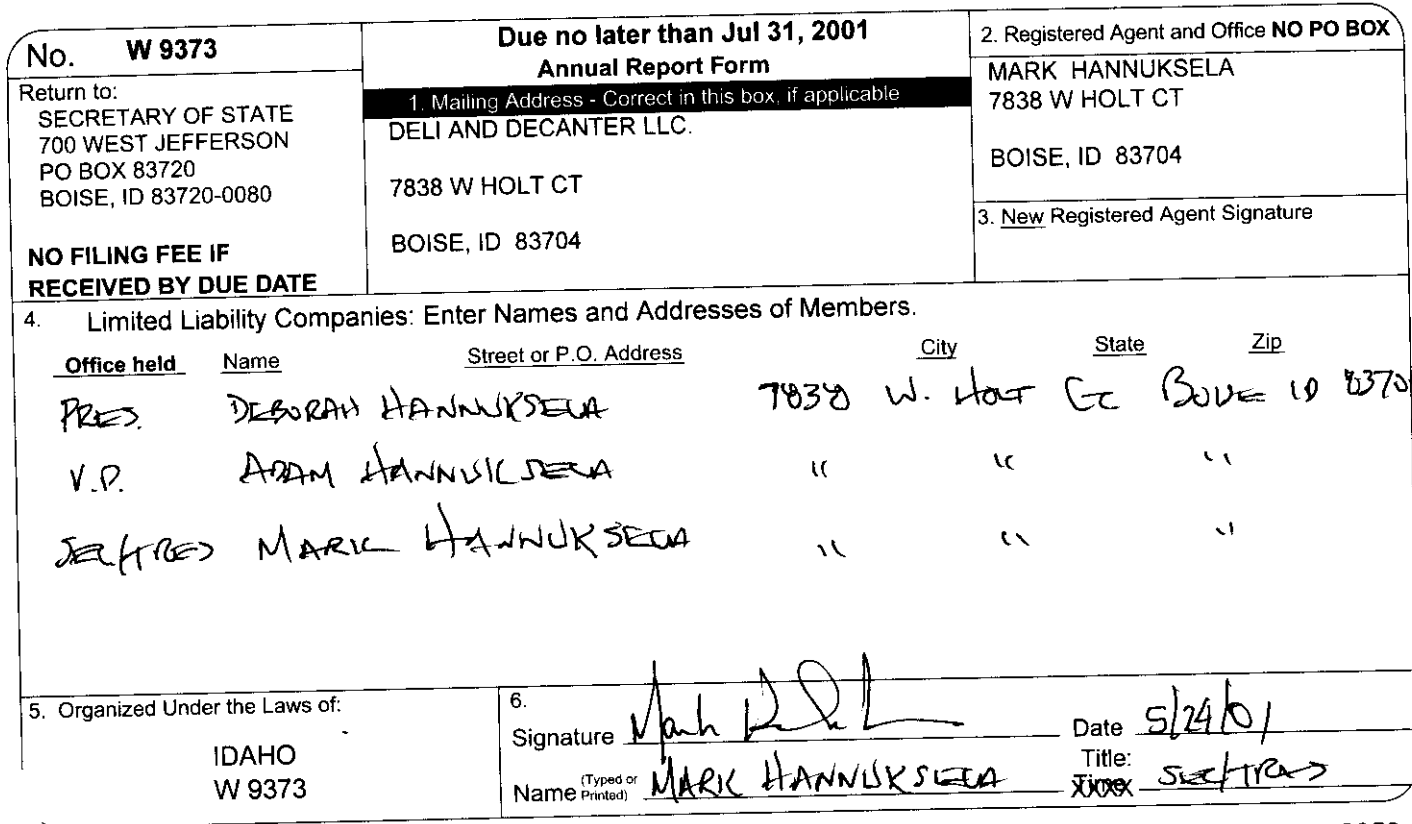 No. W 9373
Return to:
SECRETARY OF STATE
700 WEST JEFFERSON
PO BOX 83720
BOISE, ID 83720-0080
NO FILING FEE IF
RECEIVED BY DUE DATE
Due no later than Jul 31, 2001
Annual Report Form
1. Mailing Address - Correct in this box, if applicable
DELI AND DECANTER LLC.
7838 W HOLT CT
BOISE, ID 83704
2. Registered Agent and Office NO PO BOX
MARK HANNUKSELA
7838 W HOLT CT
BOISE, ID 83704
3. New Registered Agent Signature
4. Limited Liability Companies: Enter Names and Addresses of Members.
Office held Name Street or P.O. Address City State Zip
PRES. DEBORAH HANNUKSELA 7838 W. HOLT CT BOISE ID 8370
V.P. ADAM HANNUKSELA " " "
SEC/TRES MARK HANNUKSELA " " "
5. Organized Under the Laws of:
IDAHO
W 9373
6.
Signature Mark Date 5/24/01
Name (Typed or Printed) MARK HANNUKSELA Title: SEC/TRES